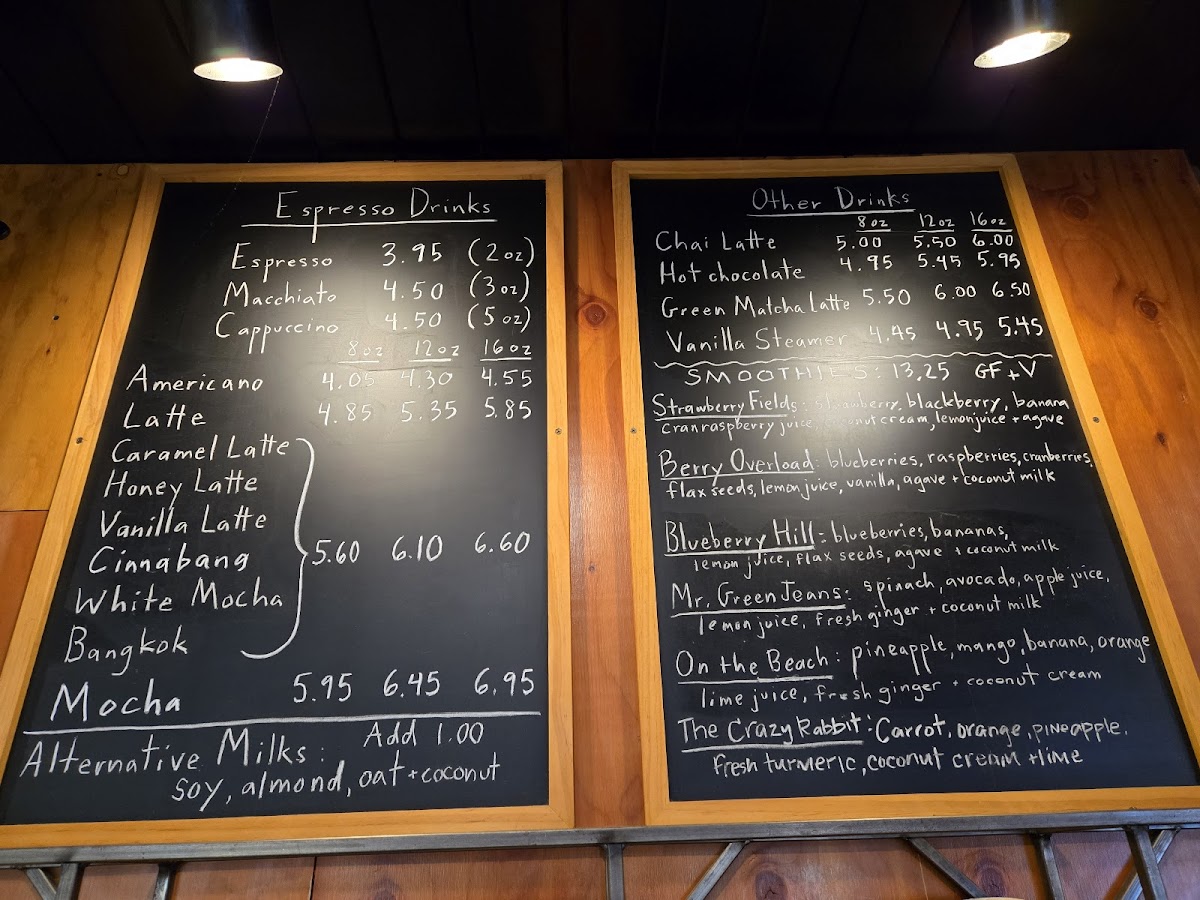 Espresso Drinks
Espresso 3.95 (2oz)
Macchiato 4.50 (3oz)
Cappuccino 4.50 (5oz)
8oz 12oz 16oz
Americano 4.05 4.30 4.55
Latte 4.85 5.35 5.85
Caramel Latte
Honey Latte
Vanilla Latte
Cinnabang 5.60 6.10 6.60
White Mocha
Bangkok
Mocha 5.95 6.45 6.95
Alternative Milks: Add 1.00
soy, almond, oat + coconut
Other Drinks
8oz 12oz 16oz
Chai Latte 5.00 5.50 6.00
Hot chocolate 4.95 5.45 5.95
Green Matcha Latte 5.50 6.00 6.50
Vanilla Steamer 4.45 4.95 5.45
SMOOTHIES: 13.25 GF + V
Strawberry Fields: strawberry, blackberry, banana
cranraspberry juice, coconut cream, lemonjuice + agave
Berry Overload: blueberries, raspberries, cranberries,
flax seeds, lemon juice, vanilla, agave + coconut milk
Blueberry Hill: blueberries, bananas,
lemon juice, flax seeds, agave + coconut milk
Mr. Green Jeans: spinach, avocado, apple juice,
lemon juice, fresh ginger + coconut milk
On the Beach: pineapple, mango, banana, orange
lime juice, fresh ginger + coconut cream
The Crazy Rabbit: Carrot, orange, pineapple,
fresh turmeric, coconut cream + lime